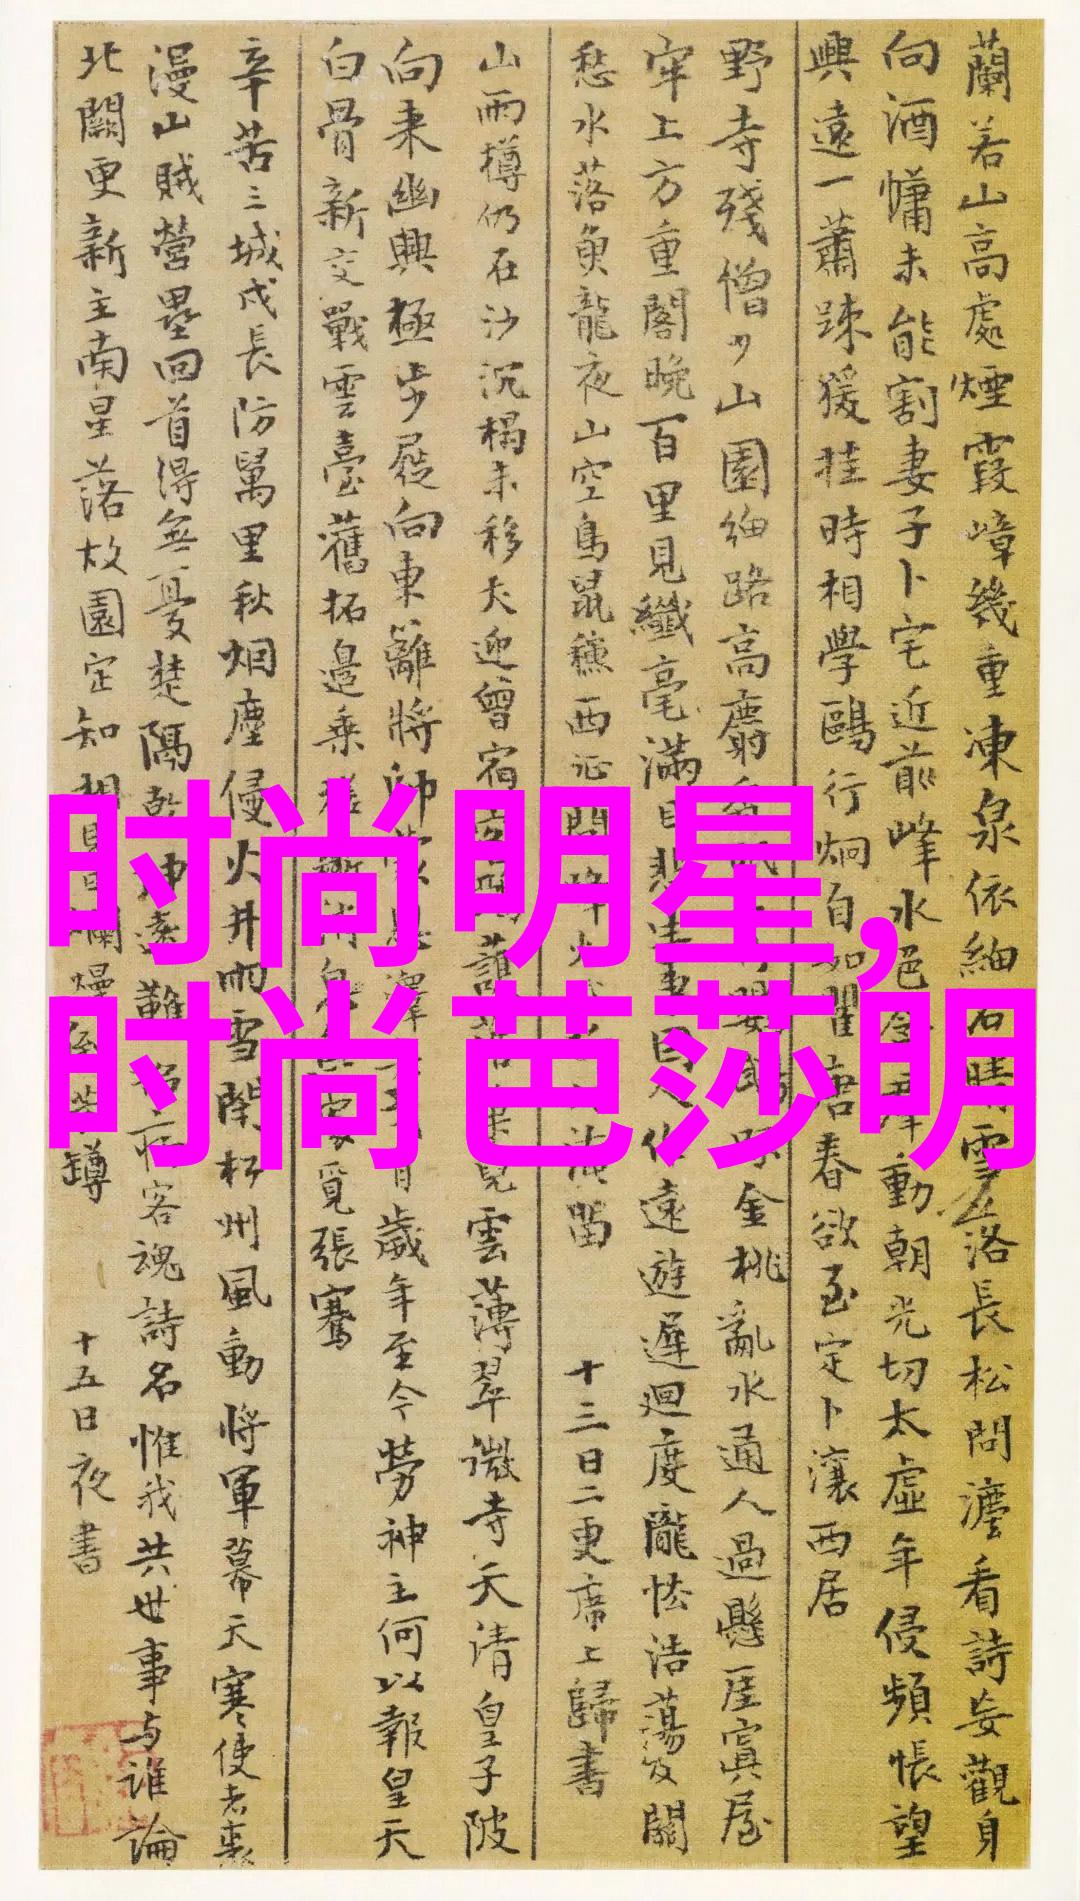 蘭若山高處煙霞嶂幾重凍泉依細石晴雪落長松問灋看詩妄觀身
向酒慵未能割妻子卜宅近前峰水色含羣動朝光切太虛年侵頻悵望
興遠一蕭踈猨挂時相學鷗行炯自如瞿唐春欲至定卜瀼西居
野寺殘僧少山園細路高麝香金桃亂水通人過懸厓寘屋
牢上方重閣晚百里見纖毫滿目悲生事因人作遠遊遲迴度隴怯浩蕩及關
愁水落魚龍夜山空鳥鼠穐西征問烽火留
十三日二更席上歸書
山雨樽仍在沙沉榻未移犬迎曾宿雲薄翠微寺天清皇子陂
向來幽興極步屧向東籬將帥歲年至今勞神主何以報皇天
白骨新交戰雲臺舊拓邉乘覓張騫
辛苦三城戍長防萬里秋烟塵侵火井雨雪閉松州風動將軍幕天寒使者裘
漫山賊營壘回首得無憂楚隔乾坤遠難招病客魂詩名惟我共世事与誰論
北闕更新主南星落故園定知相見日爛熳至共罇
十五日夜書
时尚明星,
时尚芭莎明